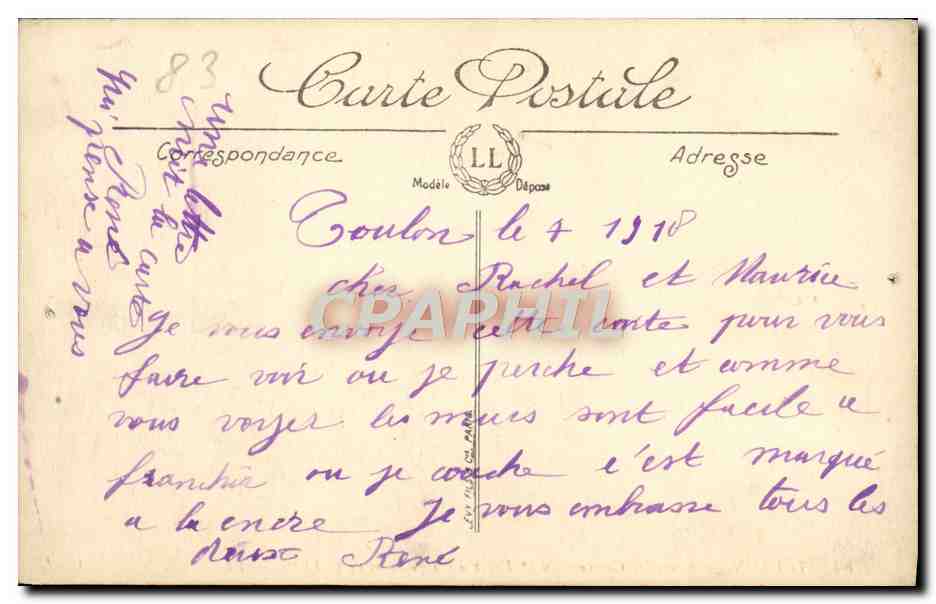 83
Carte Postale
Correspondance
LL
Adresse
Modèle Déposé
Toulon le 7 1918
cher Rachel et Maurice
Je vous envoye cette carte pour vous
faire voir ou je perche et comme
vous voyez les murs sont facile a
franchir ou je couche c'est marqué
a la encre Je vous embrasse tous les
deux René
une lettre
suit la carte
René
qui pense a vous
LEVY FILS & Cie PARIS
CPAPHIL